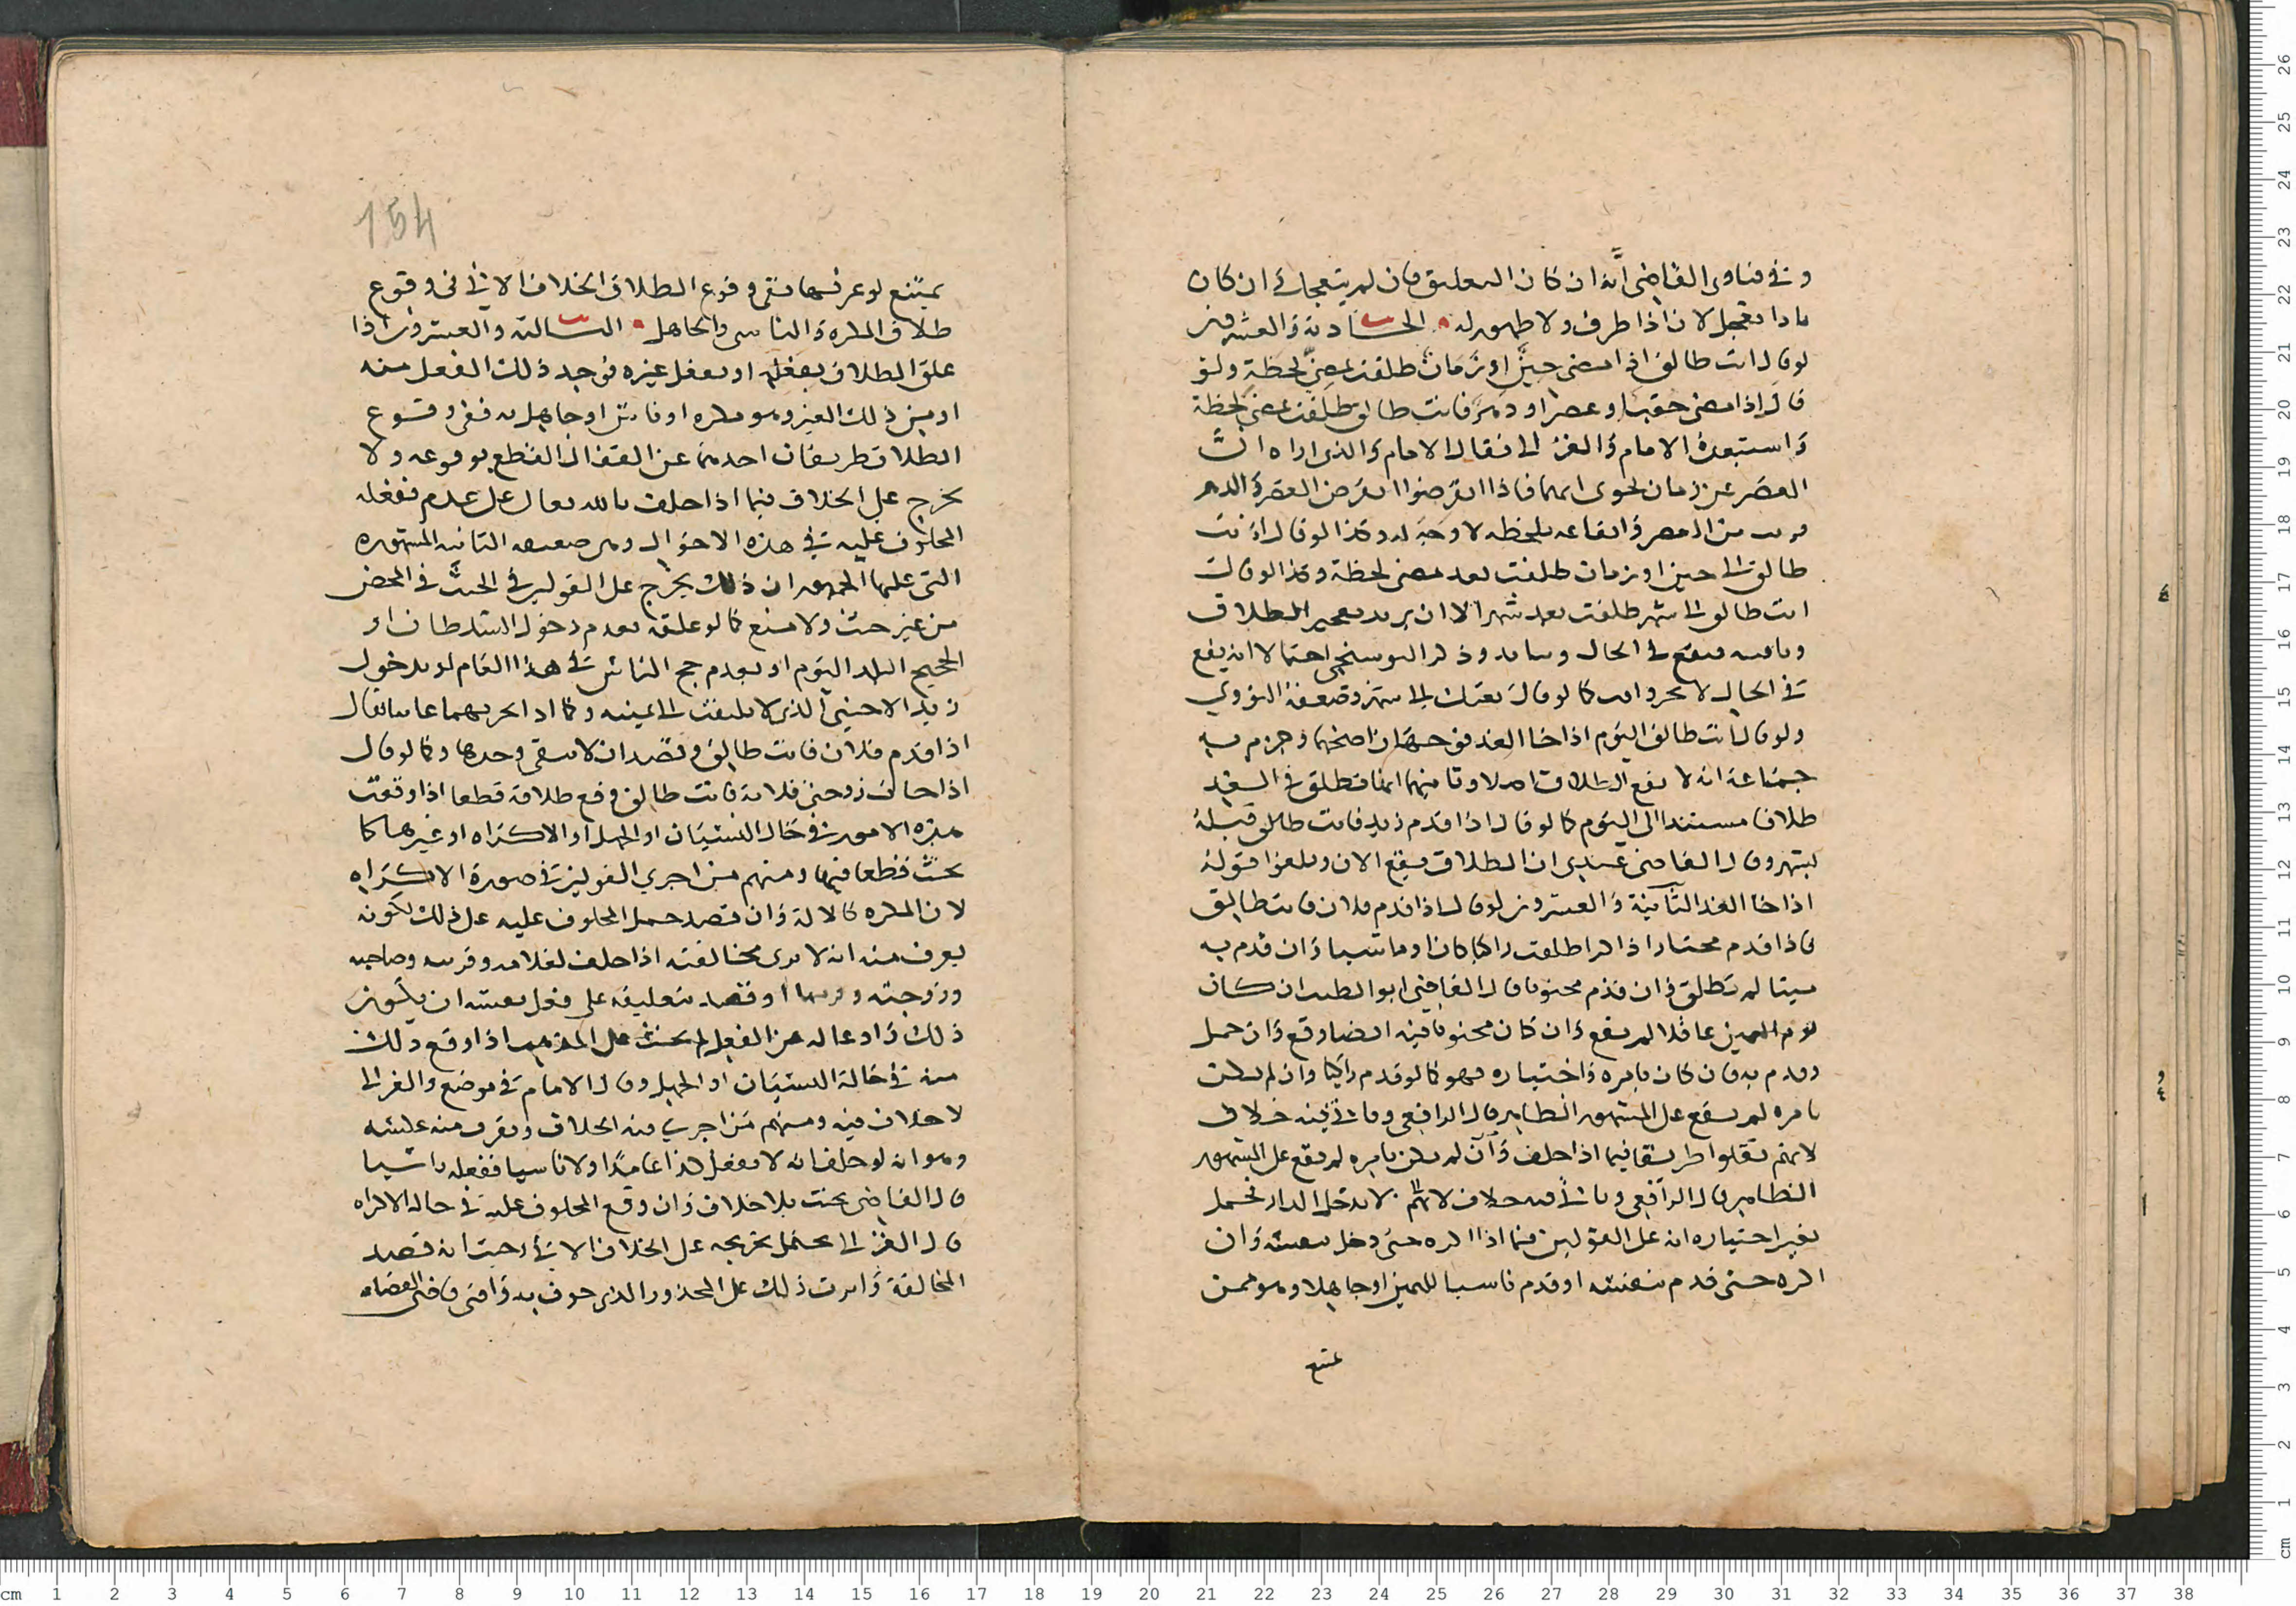 وفي فتاوى القاضي أنه ان كان التعليق بان لم يتعجل ان كان
لانه اذا ظرف ولا ظهور له الحادية والعشرون
لو قال انت طالق اذا مضى حين او زمان طلقت بمضي لحظة ولو
قال اذا مضى حقب او عصر او دهر فانت طالق طلقت بمضي لحظة
واستبعده الامام والغزالي فقال الامام والذي اراه ان
العصر عن زمان يحوى امما فاذا انقرضوا انقرض العصر والدهر
قريب من العصر وايقاعه بلحظة لا وجه له وكذا لو قال انت
طالق الى حين او زمان طلقت بعد مضي لحظة وكذا لو قال
انت طالق الى شهر طلقت بعد شهر الا ان يريد تنجيز الطلاق
وتاقيته فيقع في الحال ويتابد وذكر البوسنجي احتمالا انه يقع
في الحال كما لو قال بعتك الى شهر وضعفه النووي
ولو قال انت طالق اليوم اذا جا الغد فوجهان اصحهما وجزم به
جماعة انه لا يقع الطلاق اصلا وثانيهما انها تطلق في الغد
طلاقا مستندا الى اليوم كما لو قال اذا قدم زيد فانت طالق قبله
بشهر وقال القاضي عندي ان الطلاق يقع الان ويلغوا قوله
اذا جا الغد الثانية والعشرون لو قال اذا قدم فلان فانت طالق
فاذا قدم مختارا ذاكرا طلقت راكبا كان او ماشيا وان قدم به
ميتا لم تطلق وان قدم مجنونا قال القاضي ابو الطيب ان كان
يوم اليمين عاقلا لم يقع وان كان مجنونا فيه ايضا وقع وان حمل
وقدم به فان كان بامره واختياره فهو كما لو قدم راكبا وان لم يكن
بامره لم يقع على المشهور الظاهر قال الرافعي وياتي فيه خلاف
لانهم نقلوا طريقا فيما اذا حلف وان لم يكن بامره لم يقع على المشهور
الظاهر قال الرافعي وياتي فيه خلاف لانهم لا يدخل الدار فحمل
بغير اختياره انه على القولين فيما اذا اكره حتى دخل بنفسه وان
اكره حتى قدم بنفسه او قدم ناسيا لليمين او جاهلا وهو ممن
يمتنع
154
يمتنع لو عرفها ففي وقوع الطلاق الخلاف الاتي في وقوع
طلاق المكره والناسي والجاهل الثالثة والعشرون اذا
علق الطلاق بفعله او بفعل غيره فوجد ذلك الفعل منه
او من ذلك الغير وهو مكره او ناس او جاهل به ففي وقوع
الطلاق طريقان احدهما عن القفال القطع بوقوعه ولا
يخرج على الخلاف فيما اذا حلف بالله تعالى على عدم ففعله
المحلوف عليه في هذه الاحوال وهي ضعيفه الثانيه المشهوره
التي عليها الجمهور ان ذلك يخرج على القولين في الحنث في المحض
من غير حث ولا منع كما لو علقه بعدم دخول السلطان او
الحجيج البلد اليوم او بعدم حج الناس في هذا العام او بدخول
زيد الاجنبي الذي لا يلتفت الى يمينه وكما اذا
اذا قدم فلان فانت طالق وقصد ان لا تبقى وحدها وكما لو قال
اذا حاضت زوجتي فلانة فانت طالق وقع طلاقه قطعا اذا وقعت
هذه الامور في حال النسيان او الجهل او الاكراه او غيرها كما
يحنث قطعا فيها ومنهم من اجرى القولين في صورة الاكراه
لان المكره كالالة وان قصد حمل المحلوف عليه على ذلك لكونه
يعرف منه انه لا يرى مخالفته اذا حلف لغلامه وقريبه وصاحبه
وزوجته او قصد تعليقه على فعل نفسه ان يكون
ذلك داعيا له عن الفعل لم يحنث على المذهب اذا وقع ذلك
منه في حالة النسيان او الجهل وقال الامام في موضع والغزالي
لا خلاف فيه ومنهم من اجرى فيه الخلاف ويقرب منه عليه
وهو انه لو حلف انه لا يفعل كذا عامدا ولا ناسيا ففعله ناسيا
قال القاضي يحنث بلا خلاف وان وقع المحلوف عليه في حالة الاكراه
قال الغزالي يحتمل تخريجه على الخلاف الاتي وحيث انه قصد
المخالفة وترتب ذلك على المحذور الذي خوف به وافتى قاضي القضاه